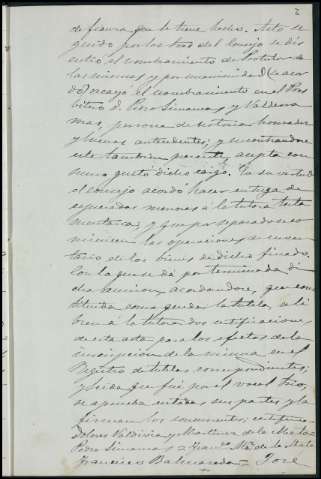 2
de fianza que le tiene hecho. Acto se
guido por los tres del Consejo se dis
cutió el nombramiento de Protutor de
las mismas y por unanimidad de acor
dó recayó el nombramiento en el Pres
bítero D. Pedro Simancas y Valderra
mas, persona de notoria honradez
y buenos antecedentes; y encontrándose
este también presente, acepta con
sumo gusto dicho cargo. En su virtud
el consejo acordó hacer entrega de
expresadas menores á la tutora testa
mentaria; y que por separado se co
miencen las operaciones de inven
tario de los bienes de dicho finado.
Con lo que se dá por terminada di
cha reunion acordándose, que cons
tituida como queda la tutela, se li
bren á la tutora dos certificaciones
de esta acta para los efectos de la
inscripcion de la misma en el
Registro de tutelas correspondiente;
y leida que fué por el vocal
se aprueba en todas sus partes y la
firman los concurrentes; certifico=
Dolores Valdivia y Martinez de la Mata=
Pedro Simancas = Franco. Ma. de la Mata
Francisco = José